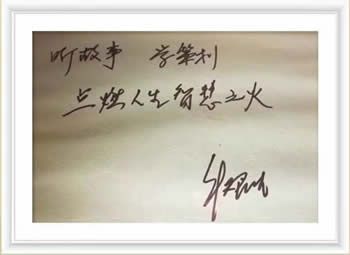 听故事 学筆利
点燃人生智慧之火